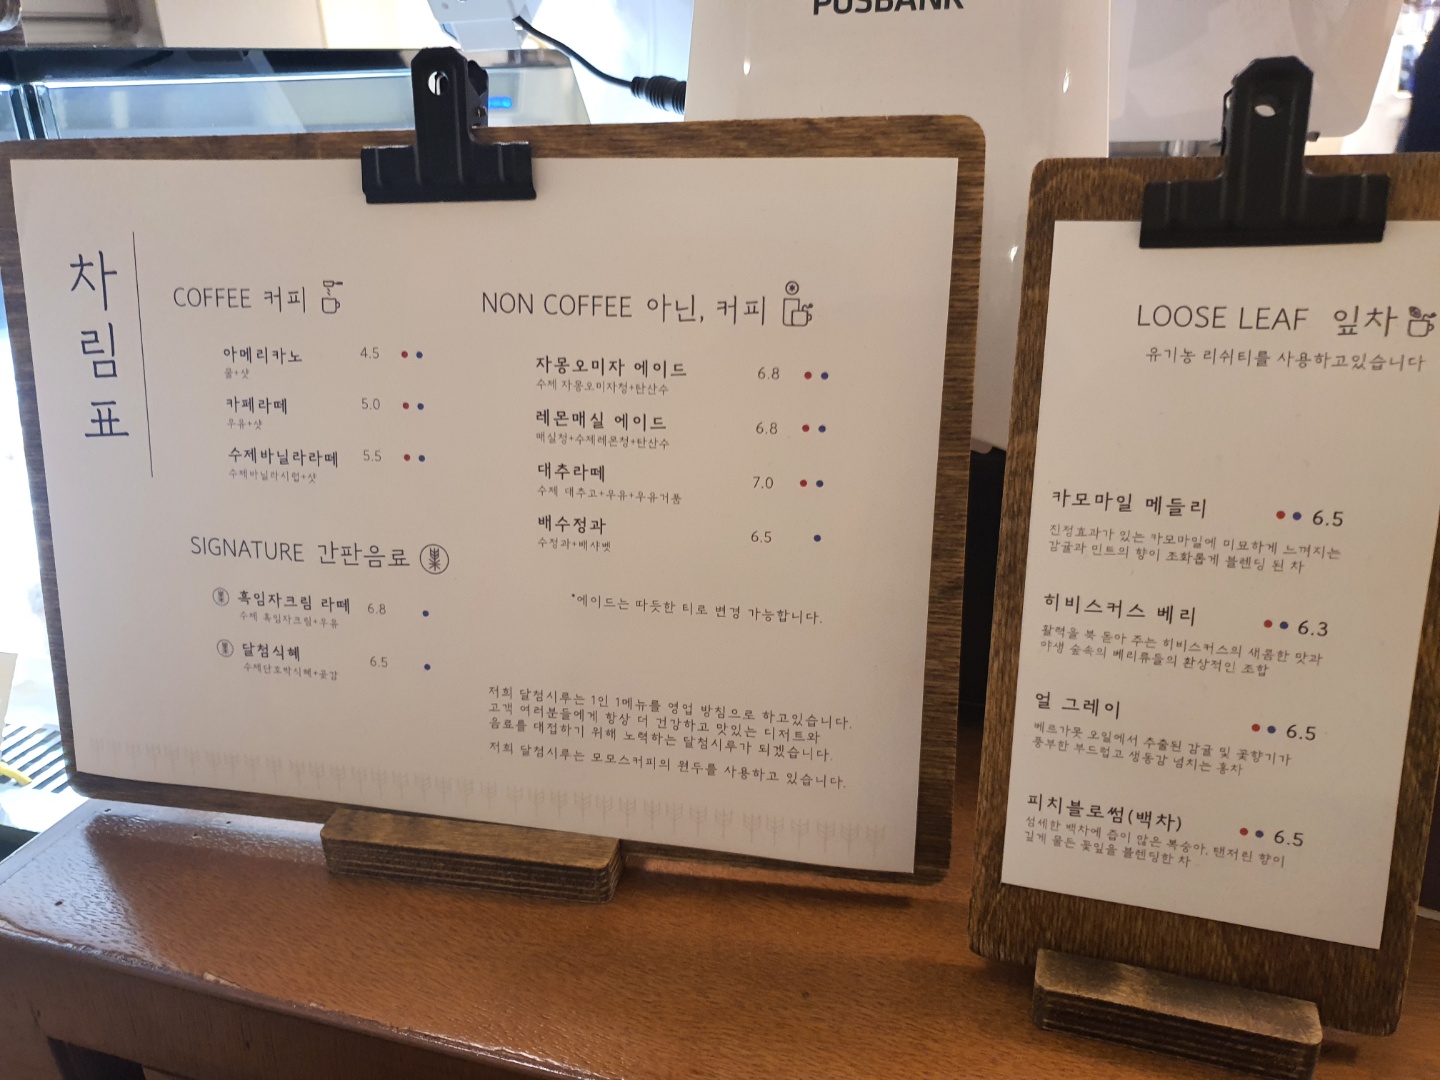 POSBANK
차림표
COFFEE 커피
아메리카노 4.5
물+샷
카페라떼 5.0
우유+샷
수제바닐라라떼 5.5
수제바닐라시럽+샷
SIGNATURE 간판음료
흑임자크림 라떼 6.8
수제 흑임자크림+우유
달첨식혜 6.5
수제단호박식혜+곶감
NON COFFEE 아닌, 커피
자몽오미자 에이드 6.8
수제 자몽오미자청+탄산수
레몬매실 에이드 6.8
매실청+수제레몬청+탄산수
대추라떼 7.0
수제 대추고+우유+우유거품
배수정과 6.5
수정과+배샤벳
*에이드는 따듯한 티로 변경 가능합니다.
저희 달첨시루는 1인 1메뉴를 영업 방침으로 하고있습니다.
고객 여러분들에게 항상 더 건강하고 맛있는 디저트와
음료를 대접하기 위해 노력하는 달첨시루가 되겠습니다.
저희 달첨시루는 모모스커피의 원두를 사용하고 있습니다.
LOOSE LEAF 잎차
유기농 리쉬티를 사용하고있습니다
카모마일 메들리 6.5
진정효과가 있는 카모마일에 미묘하게 느껴지는
감귤과 민트의 향이 조화롭게 블렌딩 된 차
히비스커스 베리 6.3
활력을 북 돋아 주는 히비스커스의 새콤한 맛과
야생 숲속의 베리류들의 환상적인 조합
얼 그레이 6.5
베르가못 오일에서 추출된 감귤 및 꽃향기가
풍부한 부드럽고 생동감 넘치는 홍차
피치블로썸(백차) 6.5
섬세한 백차에 즙이 많은 복숭아, 탠저린 향이
깊게 물든 꽃잎을 블렌딩한 차